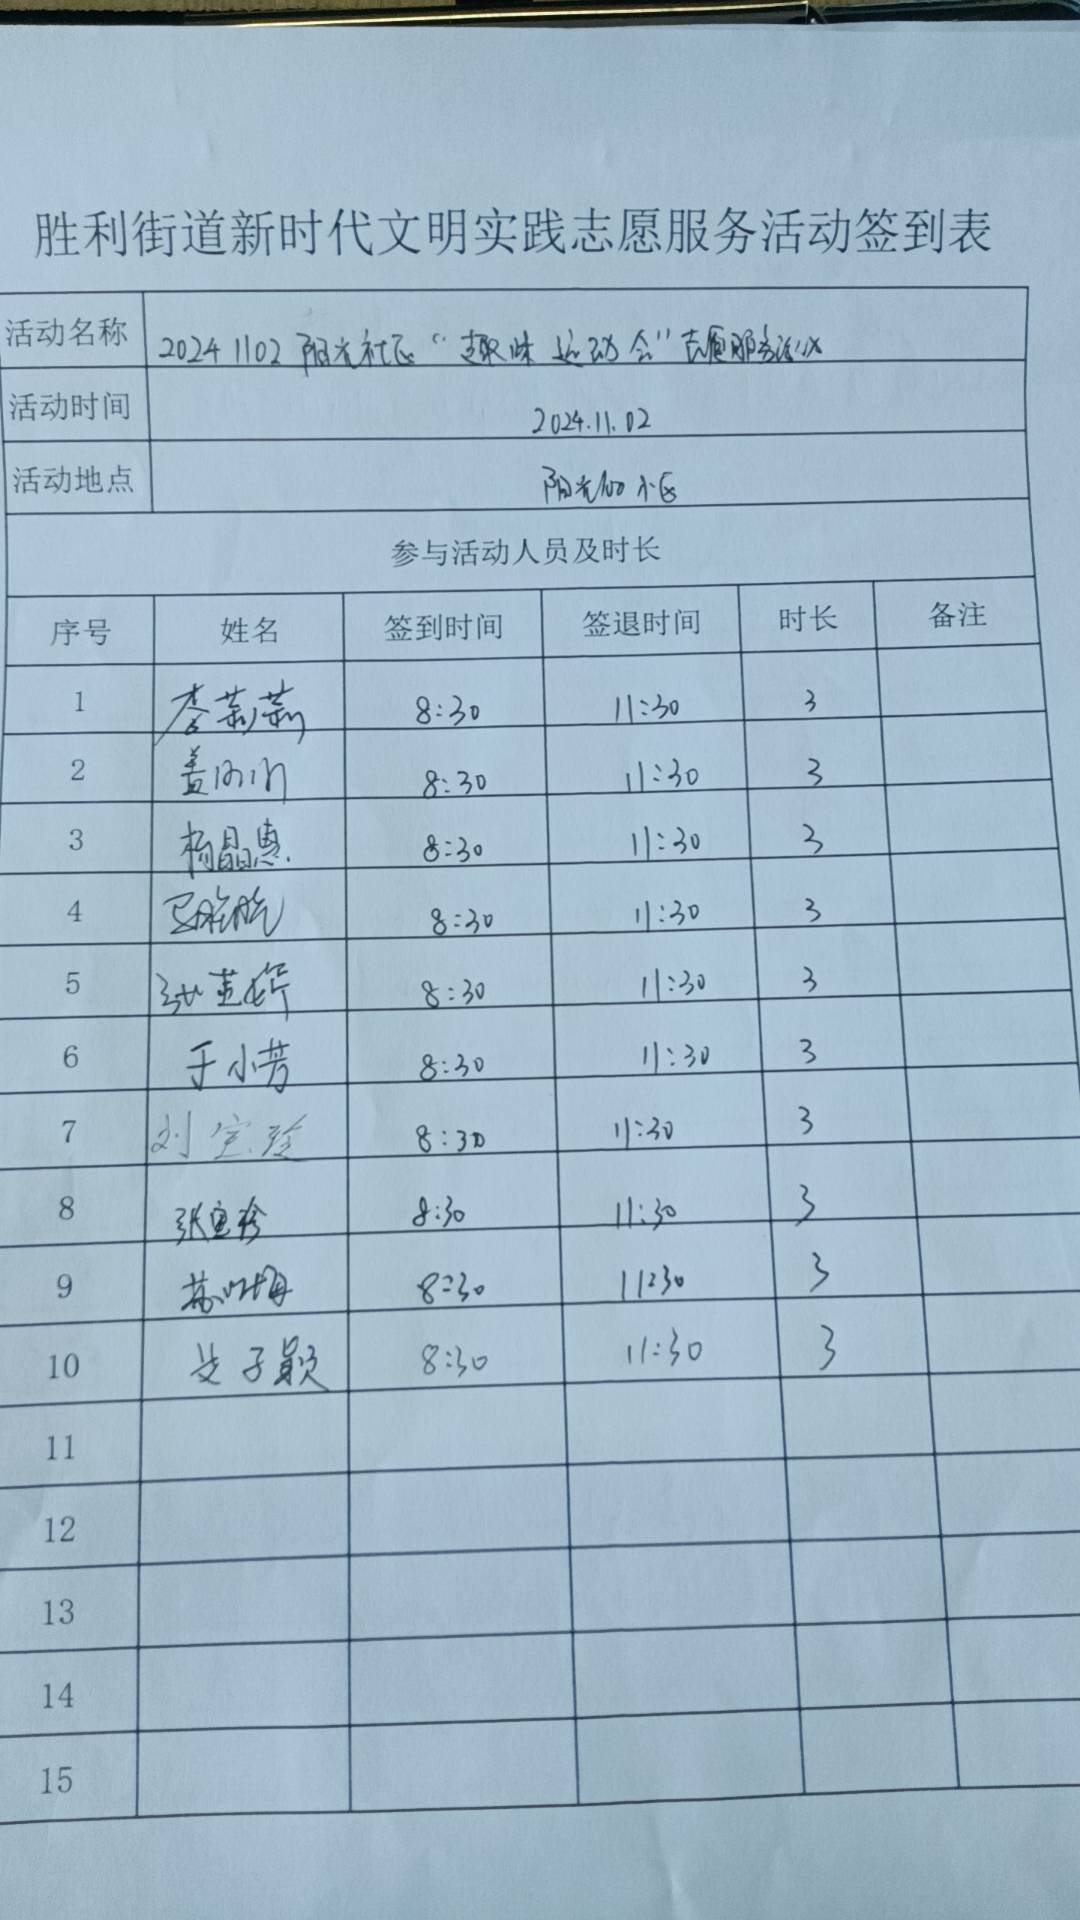 胜利街道新时代文明实践志愿服务活动签到表
活动名称 20241102 阳光社区“趣味运动会”志愿服务活动
活动时间 2024.11.02
活动地点 阳光100小区
参与活动人员及时长
序号 姓名 签到时间 签退时间 时长 备注
1 李莉莉 8:30 11:30 3
2 盖 8:30 11:30 3
3 杨晶惠 8:30 11:30 3
4 8:30 11:30 3
5 8:30 11:30 3
6 于小芳 8:30 11:30 3
7 刘宝玲 8:30 11:30 3
8 张宝珍 8:30 11:30 3
9 8:30 11:30 3
10 子颖 8:30 11:30 3
11
12
13
14
15